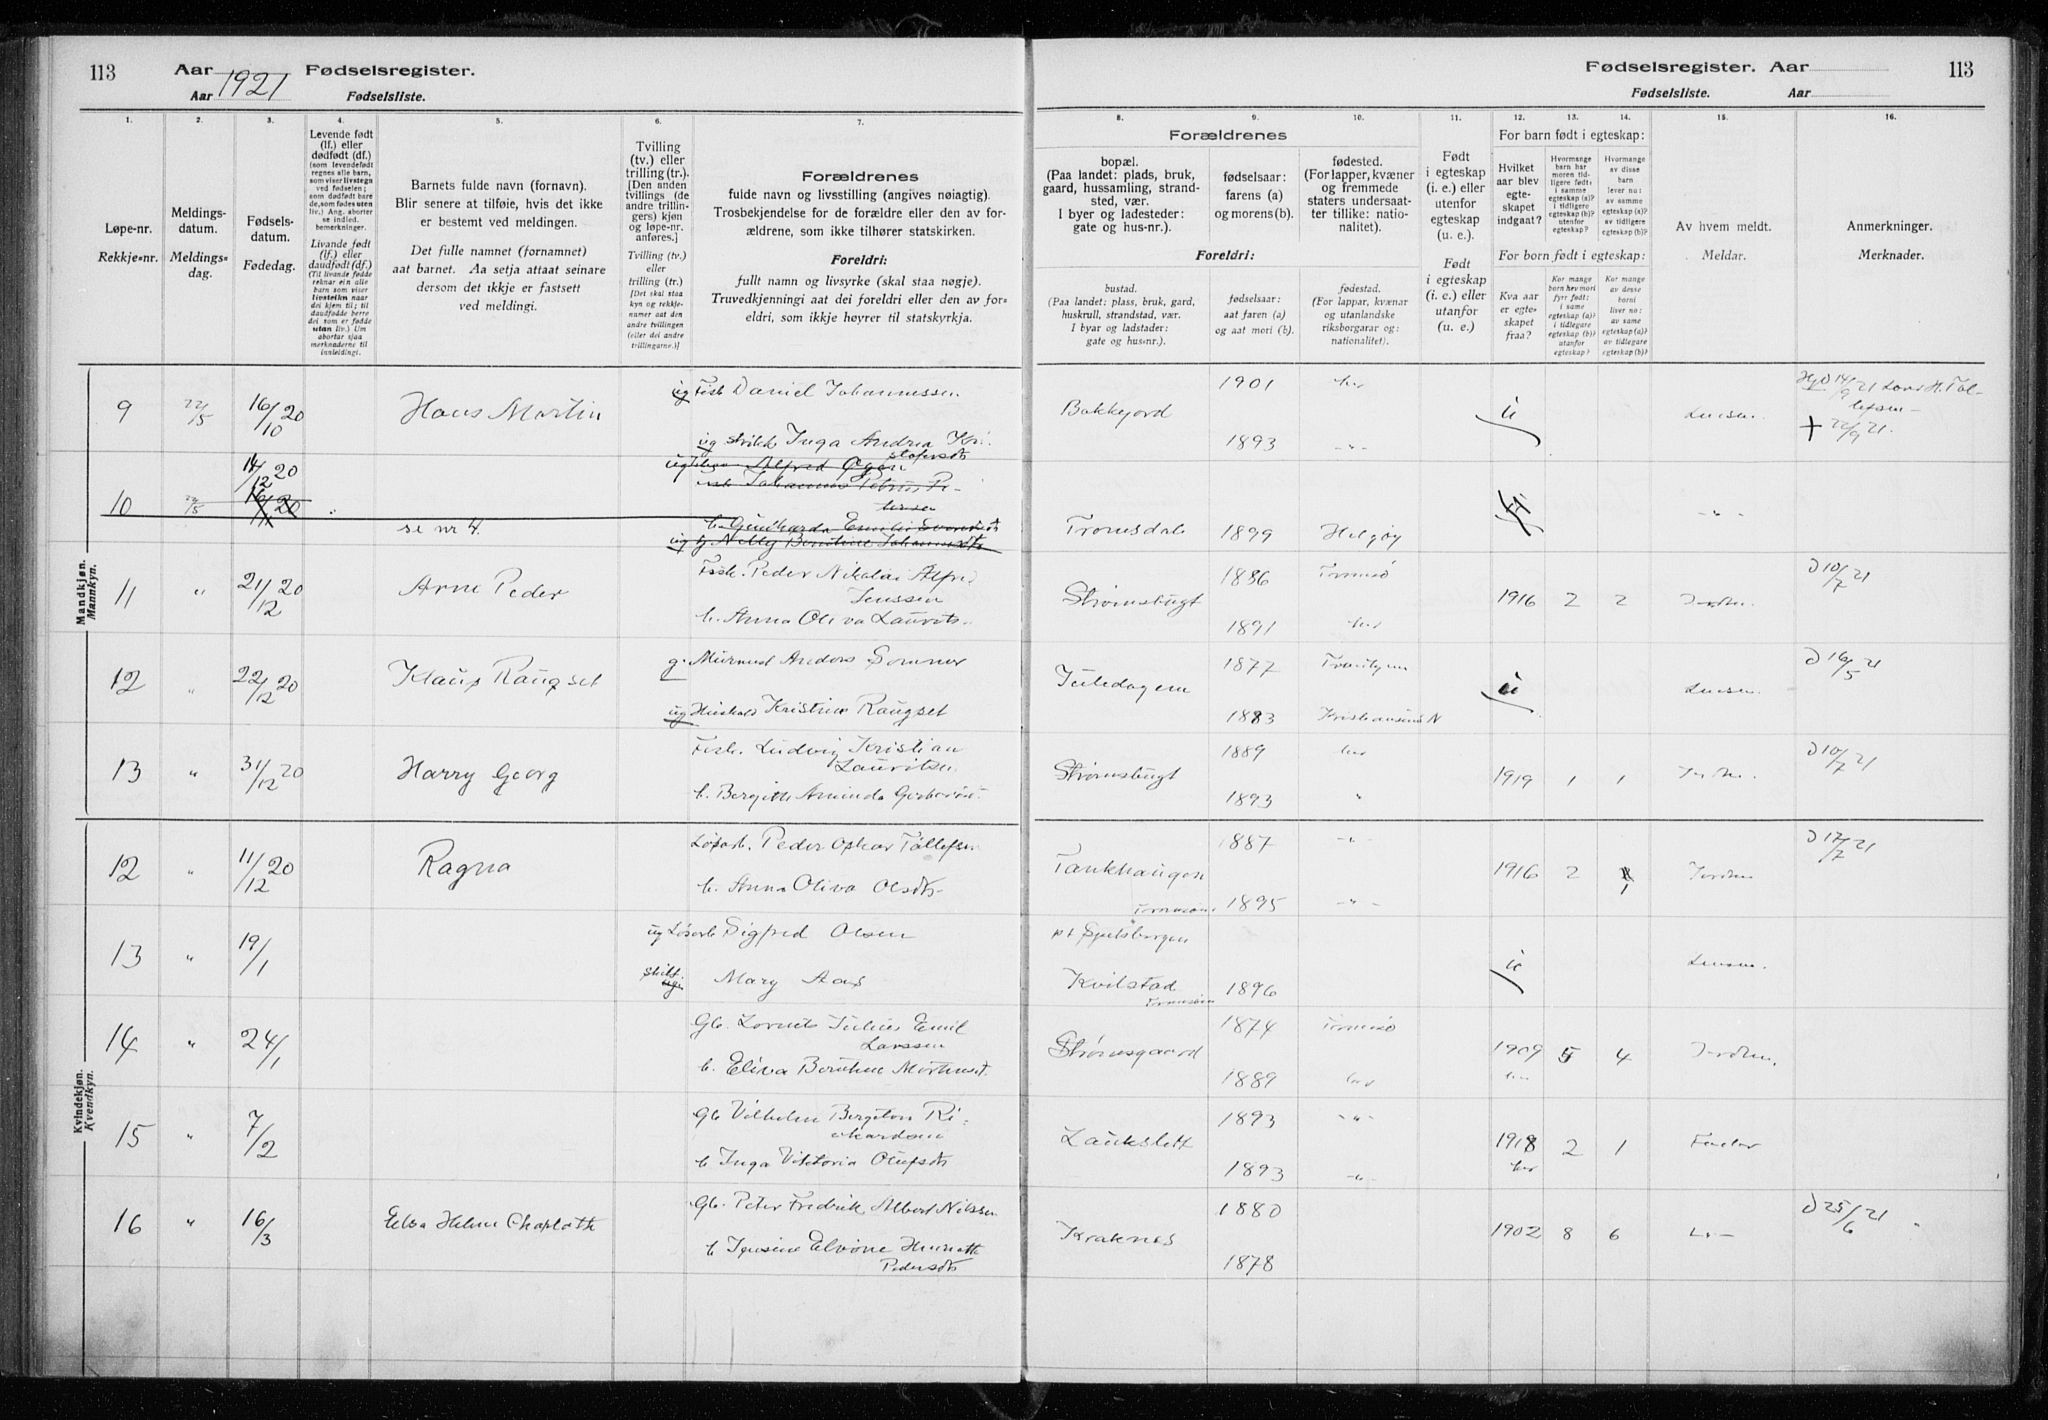 113 Aar 1921 Fødselsregister.
Aar Fødselsliste.
Fødselsregister. Aar 113
Fødselsliste. Aar
1. 2. 3. 4. 5. 6. 7.
Løpe-nr.
Rekkje-nr.
Meldings-
datum.
Meldings-
dag.
Fødsels-
datum.
Fødedag.
Levende født
(lf.) eller
dødfødt (df.)
(som levendefødt
regnes alle barn,
som viser livstegn
ved fødselen;
som dødfødt bare
de, som fødes uten
liv.) Ang. aborter
se indled.
bemerkninger.
Livande født
(lf.) eller
daudfødt (df.)
(Til livande fødde
reknar ein alle
barn som viser
livsteikn naar
dei kjem til; til
daudfødde berre
dei som er fødde
utan liv.) Um
abortar sjaa
merknaderne til
innleidingi.
Barnets fulde navn (fornavn).
Blir senere at tilføie, hvis det ikke
er bestemt ved meldingen.
Det fulle namnet (fornamnet)
aat barnet. Aa setja attaat seinare
dersom det ikkje er fastsett
ved meldingi.
Tvilling
(tv.) eller
trilling (tr.).
[Den anden
tvillings (de
andre trillin-
gers) kjøn
og løpe-nr.
anføres.]
Tvilling (tv.)
eller
trilling (tr.)
[Det skal staa
kyn og rekkje-
numer aat den
andre tvillingen
(eller dei andre
trillingarne.)]
Forældrenes
fulde navn og livsstilling (angives nøiagtig).
Trosbekjendelse for de forældre eller den av for-
ældrene, som ikke tilhører statskirken.
Foreldri:
fullt namn og livsyrke (skal staa nøgje).
Truvedkjenningi aat dei foreldri eller den av for-
eldri, som ikkje høyrer til statskyrkja.
8. 9. 10. 11. 12. 13. 14. 15. 16.
Forældrenes
bopæl.
(Paa landet: plads, bruk,
gaard, hussamling, strand-
sted, vær.
I byer og ladesteder:
gate og hus-nr.).
fødselsaar:
farens (a)
og morens (b).
fødested.
(For lapper, kvæner
og fremmede
staters undersaat-
ter tillike: natio-
nalitet).
Foreldri:
bustad.
(Paa landet: plass, bruk, gard,
huskrull, strandstad, vær.
I byar og ladstader:
gate og hus-nr.).
fødselsaar:
aat faren (a)
og aat mori (b).
fødestad.
(For lappar, kvænar
og utanlandske
riksborgarar og:
nationalitet).
Født
i egteskap
(i. e.) eller
utenfor
egteskap
(u. e.).
Født
i egteskap
(i. e.) eller
utanfor
(u. e.).
For barn født i egteskap:
Hvilket
aar blev
egte-
skapet
indgaat?
Hvormange
barn har
moren tid-
ligere født:
i samme
egteskap (a)?
i tidligere
egteskap (b)?
utenfor
egteskap?
Hvormange
av disse
barn
lever nu:
av samme
egteskap (a)?
av tidligere
egteskap (b)?
For barn født i egteskap:
Kva aar
er egte-
skapet
fraa?
Kor mange
born hev mori
fyrr født:
i same
egteskap (a)?
i tidlegare
egteskap (b)?
utanfor
egteskap?
Kor mange
av desse
borni
lever no:
av same
egteskap (a)?
av tidlegare
egteskap (b)?
Av hvem meldt.
Meldar.
Anmerkninger.
Merknader.
Mandkjøn.
Mannkyn.
9 22/5 16/10 20 Hans Martin ug Fisk Daniel Johannessen 1901 her
ug Inga Andrea Kri- Bakkejord 1893 -"- u
stofersdt + 22/9 21.
10 22/5 14/12 20 Alfred
16/11 20 Johannes
se nr 4. Emilie
ug Nelly Johannesdt Tromsdal 1899 Helgøy -"-
11 " 21/12 20 Arne Peder Fisk. Peder Nikolai Alfred
Jenssen
h. Anna Oliva Laurits. Strømsbugt 1886 Tromsø 1891 her 1916 2 2 Jordm. D 10/7 21
12 " 22/12 20 Klaus Raugset g. Anders Sommer
ug Kristine Raugset 1877 1883 Kristiansund N u D 16/5 21
13 " 31/12 20 Harry Georg Fisk. Ludvig Kristian
Lauritsen
h. Bergitte Aminda Strømsbugt 1889 her 1893 " 1919 1 1 Jordm. D 10/7 21
Kvindekjøn.
Kvendkyn.
12 " 11/12 20 Ragna Løsarb. Peder Oskar Tollefsen
h. Anna Oliva Olsdt. 1887 -"- 1895 -"- 1916 2 1 Jordm D 17/7 21
13 " 19/1 ug Løsarb Sigfred Olsen
Mary Aas pt Spitsbergen
Kvilstad 1896 u
14 " 24/1 Gb. Julius Emil
Larssen
h. Eliva Mortensdt. Strømsgaard 1874 Tromsø 1889 her 1909 5 4 Jordm.
her
15 " 7/2 Gb Vilhelm Bergeton Ri-
kardsen
h Inga Viktoria Olufsdt Laukslett 1893 -"- 1893 -"- 1918 2 1
her
16 " 16/3 Elsa Helene Charlotte Gb. Peter Fredrik Albert Nilssen
h Elvine
Pedersdt Kraknes 1880 1878 1902 8 6 D 25/6 21